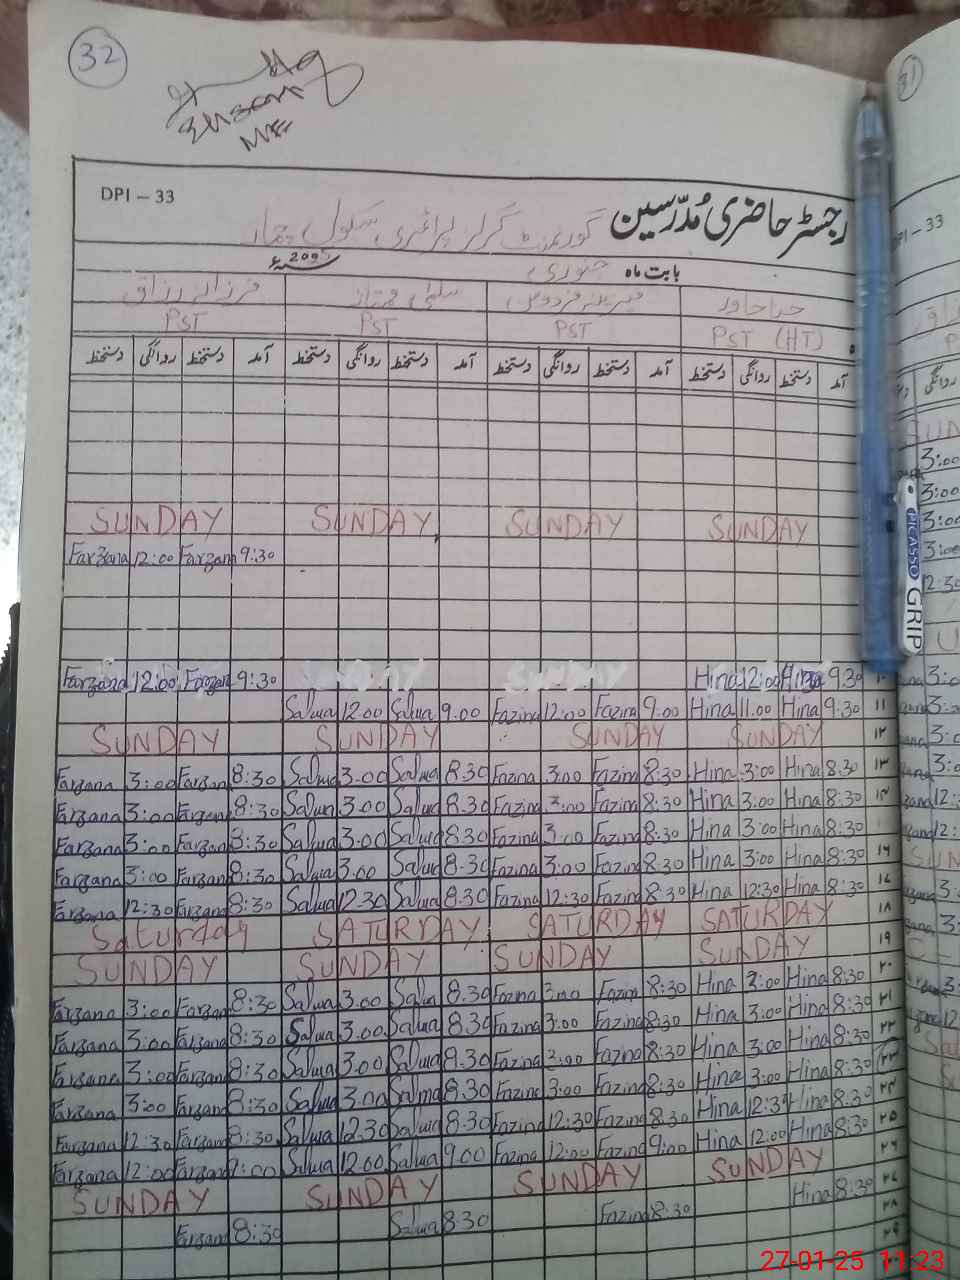 32
DPI – 33
رجسٹر حاضری مُدرّسین گورنمنٹ گرلز پرائمری سکول
بابت ماہ جنوری 2025ء
حنا خاور فردوس سلمیٰ ممتاز فرزانہ رزاق
PST (HT) PST PST PST
آمد دستخط روانگی دستخط آمد دستخط روانگی دستخط آمد دستخط روانگی دستخط آمد دستخط روانگی دستخط
SUNDAY SUNDAY SUNDAY SUNDAY
Farzana 12:00 Farzana 9:30
Farzana 12:00 Farzana 9:30 SUNDAY Hina 12:00 Hina 9:30 ۱۰
Salwa 12.00 Salwa 9.00 Fazina 12:00 Fazina 9.00 Hina 11.00 Hina 9:30 ۱۱
SUNDAY SUNDAY SUNDAY SUNDAY ۱۲
Farzana 3:00 Farzana 8:30 Salwa 3.00 Salwa 8.30 Fazina 3:00 Fazina 8:30 Hina 3:00 Hina 8:30 ۱۳
Farzana 3:00 Farzana 8:30 Salwa 3.00 Salwa 8.30 Fazina 3:00 Fazina 8:30 Hina 3:00 Hina 8:30 ۱۴
Farzana 3:00 Farzana 8:30 Salwa 3.00 Salwa 8.30 Fazina 3:00 Fazina 8:30 Hina 3:00 Hina 8:30
Farzana 3:00 Farzana 8:30 Salwa 3.00 Salwa 8.30 Fazina 3:00 Fazina 8:30 Hina 3:00 Hina 8:30 ۱۶
Farzana 12:30 Farzana 8:30 Salwa 12.30 Salwa 8.30 Fazina 12:30 Fazina 8:30 Hina 12:30 Hina 8:30 ۱۷
Saturday SATURDAY SATURDAY SATURDAY ۱۸
SUNDAY SUNDAY SUNDAY SUNDAY ۱۹
Farzana 3:00 Farzana 8:30 Salwa 3.00 Salwa 8.30 Fazina 3:00 Fazina 8:30 Hina 3:00 Hina 8:30 ۲۰
Farzana 3:00 Farzana 8:30 Salwa 3.00 Salwa 8.30 Fazina 3:00 Fazina 8:30 Hina 3:00 Hina 8:30 ۲۱
Farzana 3:00 Farzana 8:30 Salwa 3.00 Salwa 8.30 Fazina 3:00 Fazina 8:30 Hina 3:00 Hina 8:30 ۲۲
Farzana 3:00 Farzana 8:30 Salwa 3.00 Salwa 8.30 Fazina 3:00 Fazina 8:30 Hina 3:00 Hina 8:30 ۲۳
Farzana 12:30 Farzana 8:30 Salwa 12.30 Salwa 8.30 Fazina 12:30 Fazina 8:30 Hina 12:30 Hina 8:30 ۲۴
Farzana 12:00 Farzana 9:00 Salwa 12.00 Salwa 9.00 Fazina 12:00 Fazina 9:00 Hina 12:00 Hina 8:30 ۲۵
SUNDAY SUNDAY SUNDAY SUNDAY ۲۶
Farzana 8:30 Salwa 8.30 Fazina 8:30 Hina 8:30 ۲۷
۲۸
۲۹
31
DPI – 33
روانگی
SUN
3:00
3:00
3:00
3:00
12:30
PICASSO GRIP
27-01-25 11:23